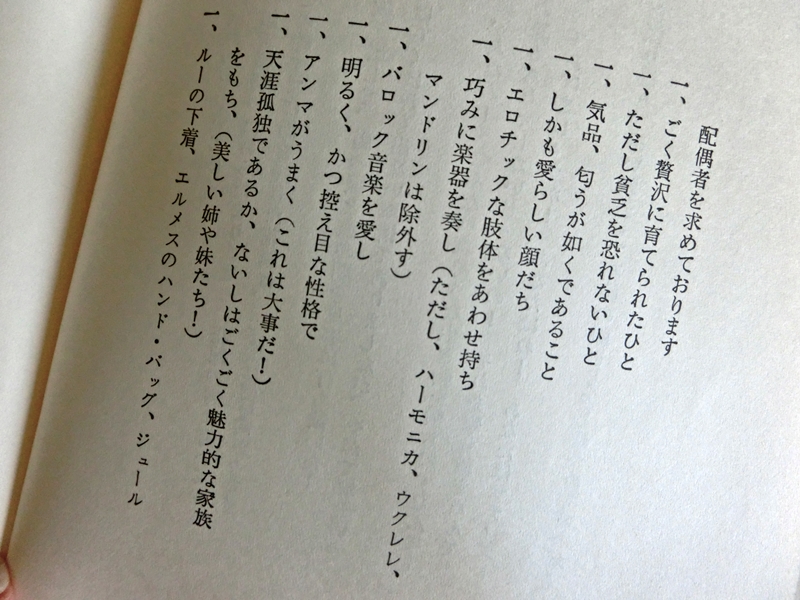 配偶者を求めております
一、ごく贅沢に育てられたひと
一、ただし貧乏を恐れないひと
一、気品、匂うが如くであること
一、しかも愛らしい顔だち
一、エロチックな肢体をあわせ持ち
一、巧みに楽器を奏し（ただし、ハーモニカ、ウクレレ、
マンドリンは除外す）
一、バロック音楽を愛し
一、明るく、かつ控え目な性格で
一、アンマがうまく（これは大事だ！）
一、天涯孤独であるか、ないしはごくごく魅力的な家族
をもち、（美しい姉や妹たち！）
一、ルーの下着、エルメスのハンド・バッグ、ジュール